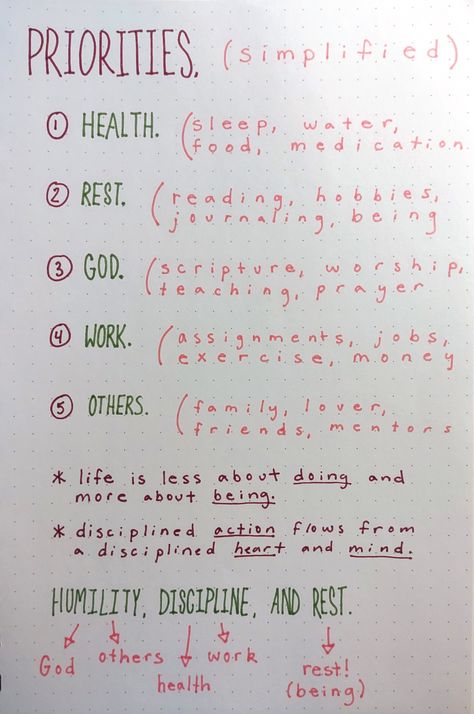 PRIORITIES. (simplified)
① HEALTH. (sleep, water,
food, medication
② REST. (reading, hobbies,
journaling, being
③ GOD. (scripture, worship,
teaching, prayer
④ WORK. (assignments, jobs,
exercise, money
⑤ OTHERS. (family, lover,
friends, mentors
* life is less about doing and
more about being.
* disciplined action flows from
a disciplined heart and mind.
HUMILITY, DISCIPLINE, AND REST.
God others health work rest!
(being)